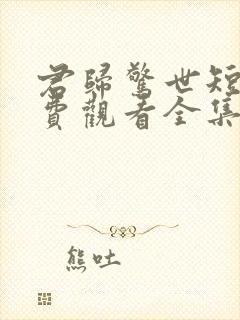 君歸驚世短
費觀看全集
熊吐